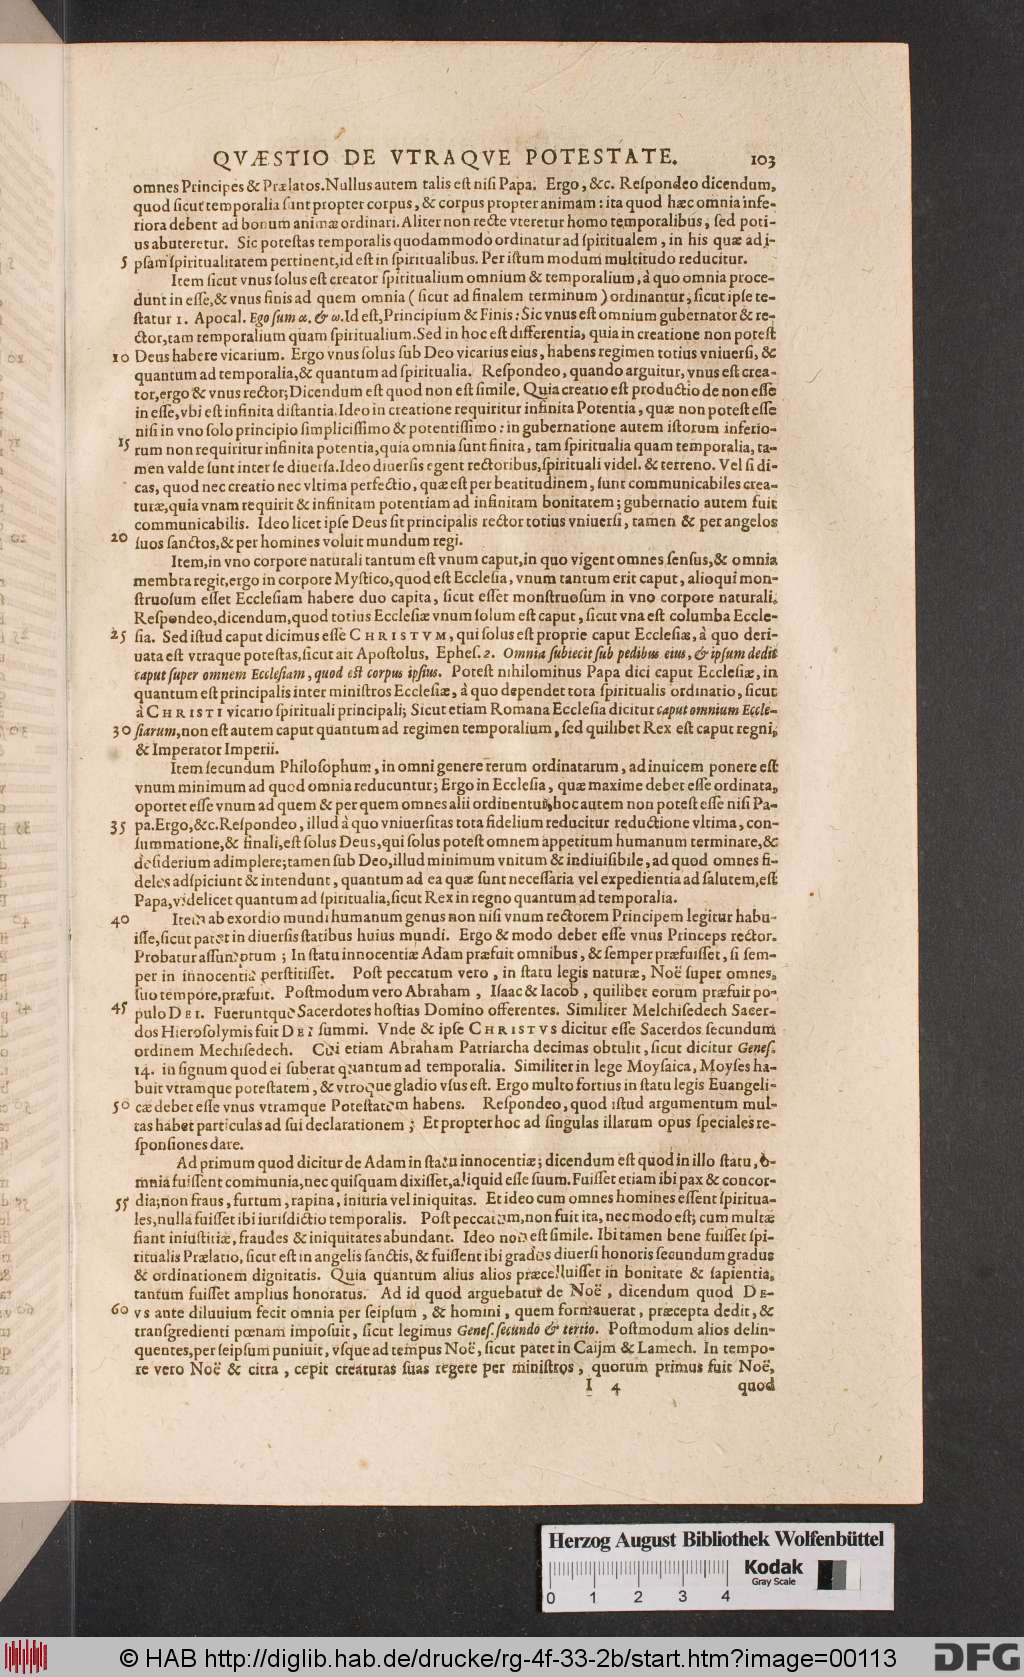 QVÆSTIO DE VTRAQVE POTESTATE. 103
omnes Principes & Prælatos. Nullus autem talis est nisi Papa. Ergo, &c. Respondeo dicendum,
quod sicut temporalia sunt propter corpus, & corpus propter animam: ita quod hæc omnia infe-
riora debent ad bonum animæ ordinari. Aliter non recte vteretur homo temporalibus, sed poti-
us abuteretur. Sic potestas temporalis quodammodo ordinatur ad spiritualem, in his quæ ad i-
5 psam spiritualitatem pertinent, id est in spiritualibus. Per istum modum multitudo reducitur.
Item sicut vnus solus est creator spiritualium omnium & temporalium, à quo omnia proce-
dunt in esse, & vnus finis ad quem omnia (sicut ad finalem terminum) ordinantur, sicut ipse te-
statur 1. Apocal. Ego sum α. & ω. Id est, Principium & Finis: Sic vnus est omnium gubernator & re-
ctor, tam temporalium quam spiritualium. Sed in hoc est differentia, quia in creatione non potest
10 Deus habere vicarium. Ergo vnus solus sub Deo vicarius eius, habens regimen totius vniuersi, &
quantum ad temporalia, & quantum ad spiritualia. Respondeo, quando arguitur, vnus est crea-
tor, ergo & vnus rector; Dicendum est quod non est simile. Quia creatio est productio de non esse
in esse, vbi est infinita distantia. Ideo in creatione requiritur infinita Potentia, quæ non potest esse
nisi in vno solo principio simplicissimo & potentissimo: in gubernatione autem istorum inferio-
15 rum non requiritur infinita potentia, quia omnia sunt finita, tam spiritualia quam temporalia, ta-
men valde sunt inter se diuersa. Ideo diuersis egent rectoribus, spirituali videl. & terreno. Vel si di-
cas, quod nec creatio nec vltima perfectio, quæ est per beatitudinem, sunt communicabiles crea-
turæ, quia vnam requirit & infinitam potentiam ad infinitam bonitatem; gubernatio autem fuit
communicabilis. Ideo licet ipse Deus sit principalis rector totius vniuersi, tamen & per angelos
20 suos sanctos, & per homines voluit mundum regi.
Item, in vno corpore naturali tantum est vnum caput, in quo vigent omnes sensus, & omnia
membra regit, ergo in corpore Mystico, quod est Ecclesia, vnum tantum erit caput, alioqui mon-
struosum esset Ecclesiam habere duo capita, sicut esset monstruosum in vno corpore naturali.
Respondeo, dicendum, quod totius Ecclesiæ vnum solum est caput, sicut vna est columba Eccle-
25 sia. Sed istud caput dicimus esse CHRISTVM, qui solus est proprie caput Ecclesiæ, à quo deri-
uata est vtraque potestas, sicut ait Apostolus, Ephes. 2. Omnia subiecit sub pedibus eius, & ipsum dedit
caput super omnem Ecclesiam, quod est corpus ipsius. Potest nihilominus Papa dici caput Ecclesiæ, in
quantum est principalis inter ministros Ecclesiæ, à quo dependet tota spiritualis ordinatio, sicut
à CHRISTI vicario spirituali principali; Sicut etiam Romana Ecclesia dicitur caput omnium Eccle-
30 siarum, non est autem caput quantum ad regimen temporalium, sed quilibet Rex est caput regni,
& Imperator Imperii.
Item secundum Philosophum, in omni genere rerum ordinatarum, ad inuicem ponere est
vnum minimum ad quod omnia reducuntur; Ergo in Ecclesia, quæ maxime debet esse ordinata,
oportet esse vnum ad quem & per quem omnes alii ordinentur, hoc autem non potest esse nisi Pa-
35 pa. Ergo, &c. Respondeo, illud à quo vniuersitas tota fidelium reducitur reductione vltima, con-
summatione, & finali, est solus Deus, qui solus potest omnem appetitum humanum terminare, &
desiderium adimplere; tamen sub Deo, illud minimum vnitum & indiuisibile, ad quod omnes fi-
deles adspiciunt & intendunt, quantum ad ea quæ sunt necessaria vel expedientia ad salutem, est
Papa, videlicet quantum ad spiritualia, sicut Rex in regno quantum ad temporalia.
40 Item ab exordio mundi humanum genus non nisi vnum rectorem Principem legitur habu-
isse, sicut patet in diuersis statibus huius mundi. Ergo & modo debet esse vnus Princeps rector.
Probatur assumptum; In statu innocentiæ Adam præfuit omnibus, & semper præfuisset, si sem-
per in innocentia perstitisset. Post peccatum vero, in statu legis naturæ, Noë super omnes,
suo tempore, præfuit. Postmodum vero Abraham, Isaac & Iacob, quilibet eorum præfuit po-
45 pulo DEI. Fueruntque Sacerdotes hostias Domino offerentes. Similiter Melchisedech Sacer-
dos Hierosolymis fuit DEI summi. Vnde & ipse CHRISTVS dicitur esse Sacerdos secundum
ordinem Mechisedech. Cui etiam Abraham Patriarcha decimas obtulit, sicut dicitur Genes.
14. in signum quod ei suberat quantum ad temporalia. Similiter in lege Moysaica, Moyses ha-
buit vtramque potestatem, & vtroque gladio vsus est. Ergo multo fortius in statu legis Euangeli-
50 cæ debet esse vnus vtramque Potestatem habens. Respondeo, quod istud argumentum mul-
tas habet particulas ad sui declarationem; Et propter hoc ad singulas illarum opus speciales re-
sponsiones dare.
Ad primum quod dicitur de Adam in statu innocentiæ; dicendum est quod in illo statu, o-
mnia fuissent communia, nec quisquam dixisset, aliquid esse suum. Fuisset etiam ibi pax & concor-
55 dia; non fraus, furtum, rapina, iniuria vel iniquitas. Et ideo cum omnes homines essent spiritua-
les, nulla fuisset ibi iurisdictio temporalis. Post peccatum, non fuit ita, nec modo est; cum multæ
fiant iniustitiæ, fraudes & iniquitates abundant. Ideo non est simile. Ibi tamen bene fuisset spi-
ritualis Prælatio, sicut est in angelis sanctis, & fuissent ibi gradus diuersi honoris secundum gradus
& ordinationem dignitatis. Quia quantum alius alios præcelluisset in bonitate & sapientia,
tantum fuisset amplius honoratus. Ad id quod arguebatur de Noë, dicendum quod DE-
60 VS ante diluuium fecit omnia per seipsum, & homini, quem formauerat, præcepta dedit, &
transgredienti pœnam imposuit, sicut legimus Genes. secundo & tertio. Postmodum alios delin-
quentes, per seipsum puniuit, vsque ad tempus Noë, sicut patet in Caijm & Lamech. In tempo-
re vero Noë & citra, cepit creaturas suas regere per ministros, quorum primus fuit Noë,
I 4 quod
Herzog August Bibliothek Wolfenbüttel
Kodak
Gray Scale
0 1 2 3 4
© HAB http://diglib.hab.de/drucke/rg-4f-33-2b/start.htm?image=00113
DFG